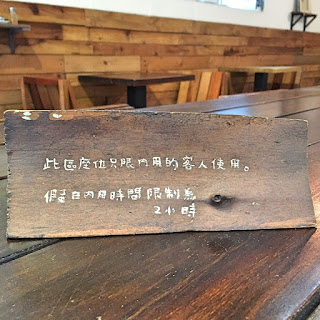 此區座位只限內用的客人使用。
假日內用時間限制為
2小時